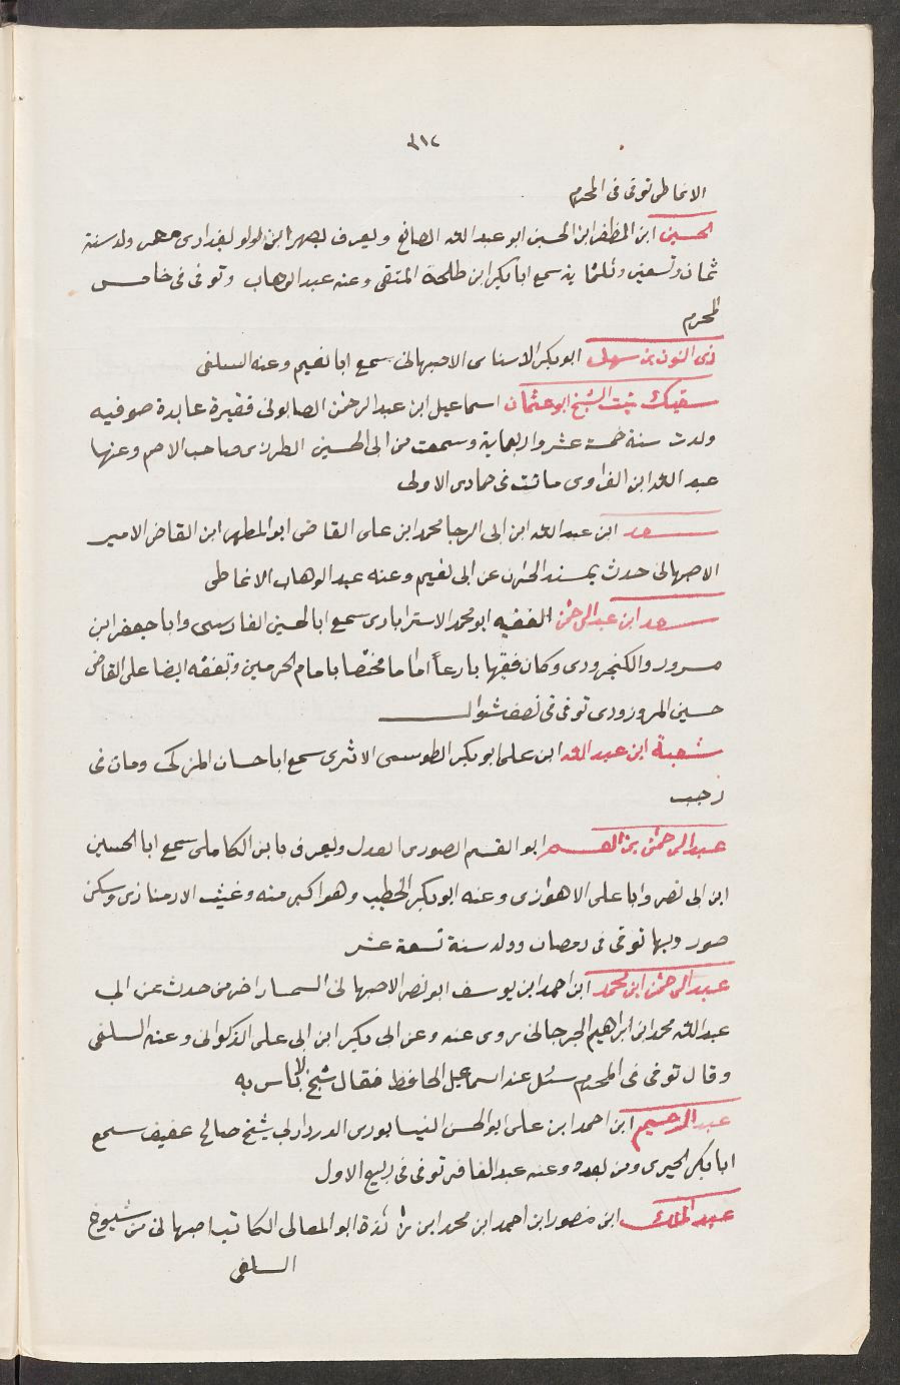 الانماطى توفى فى المحرم
الحسين ابن المظفر ابن الحسين ابو عبد الله الصائغ ويعرف بصهر ابن لولو بغدادى ولد سنة
ثمان وتسعين وثلثماية سمع ابا بكر ابن طلحة المتقى وعنه عبد الوهاب وتوفى فى خامس
المحرم
ذى النون بن سهل ابو بكر الاسناى الاصبهانى سمع ابا نعيم وعنه السلفى
ستيك بنت الشيخ ابو عثمان اسماعيل ابن عبد الرحمن الصابونى فقيرة عابدة صوفيه
ولدت سنة خمسة عشر واربعماية وسمعت من ابى الحسين الطرازى صاحب الاصم وعنها
عبد الله ابن الفراوى ماتت فى جمادى الاولى
سعد ابن عبد الله ابن ابى الرجا محمد ابن على القاضى ابو المطهر ابن القاضى الامير
الاصبهانى حدث بمسند الحارث عن ابى نعيم وعنه عبد الوهاب الانماطى
سعد ابن عبد الرحمن الفقيه ابو محمد الاسترابادى سمع ابا الحسين الفارسى وابا حفص ابن
مسرور والكنجرودى وكان فقيها بارعاً اماما مختصا بامام الحرمين وتفقه ايضا على القاضى
حسين المروروذى توفى فى نصف شوال
شعبة ابن عبد الله ابن على ابو بكر الطوسى الاثرى سمع ابا حسان المزكى ومات فى
رجب
عبد الرحمن بن القسم ابو القسم الصورى العدل ويعرف بابن الكاملى سمع ابا الحسين
ابن ابى نصر وابا على الاهوازى وعنه ابو بكر الخطيب وهو اكبر منه وغيث الارمنازى وسكن
صور وبها توفى فى رمضان وولد سنة تسعة عشر
عبد الرحمن ابن محمد ابن احمد ابن يوسف ابو نصر الاصبهانى السمسار اخر من حدث عن ابى
عبد الله محمد ابن ابراهيم الجرجانى يروى عنه وعن ابى بكر ابن ابى على الذكوانى وعنه السلفى
وقال توفى فى المحرم سئل عنه اسماعيل الحافظ فقال شيخ لا باس به
عبد الرحيم ابن احمد ابن على ابو الحسن النيسابورى شيخ صالح عفيف سمع
ابا بكر الحيرى ومن بعده وعنه عبد الغافر توفى فى ربيع الاول
عبد الملك ابن منصور ابن احمد ابن محمد ابن ابو المعالى الكاتب اصبهانى من شيوخ
السلفى